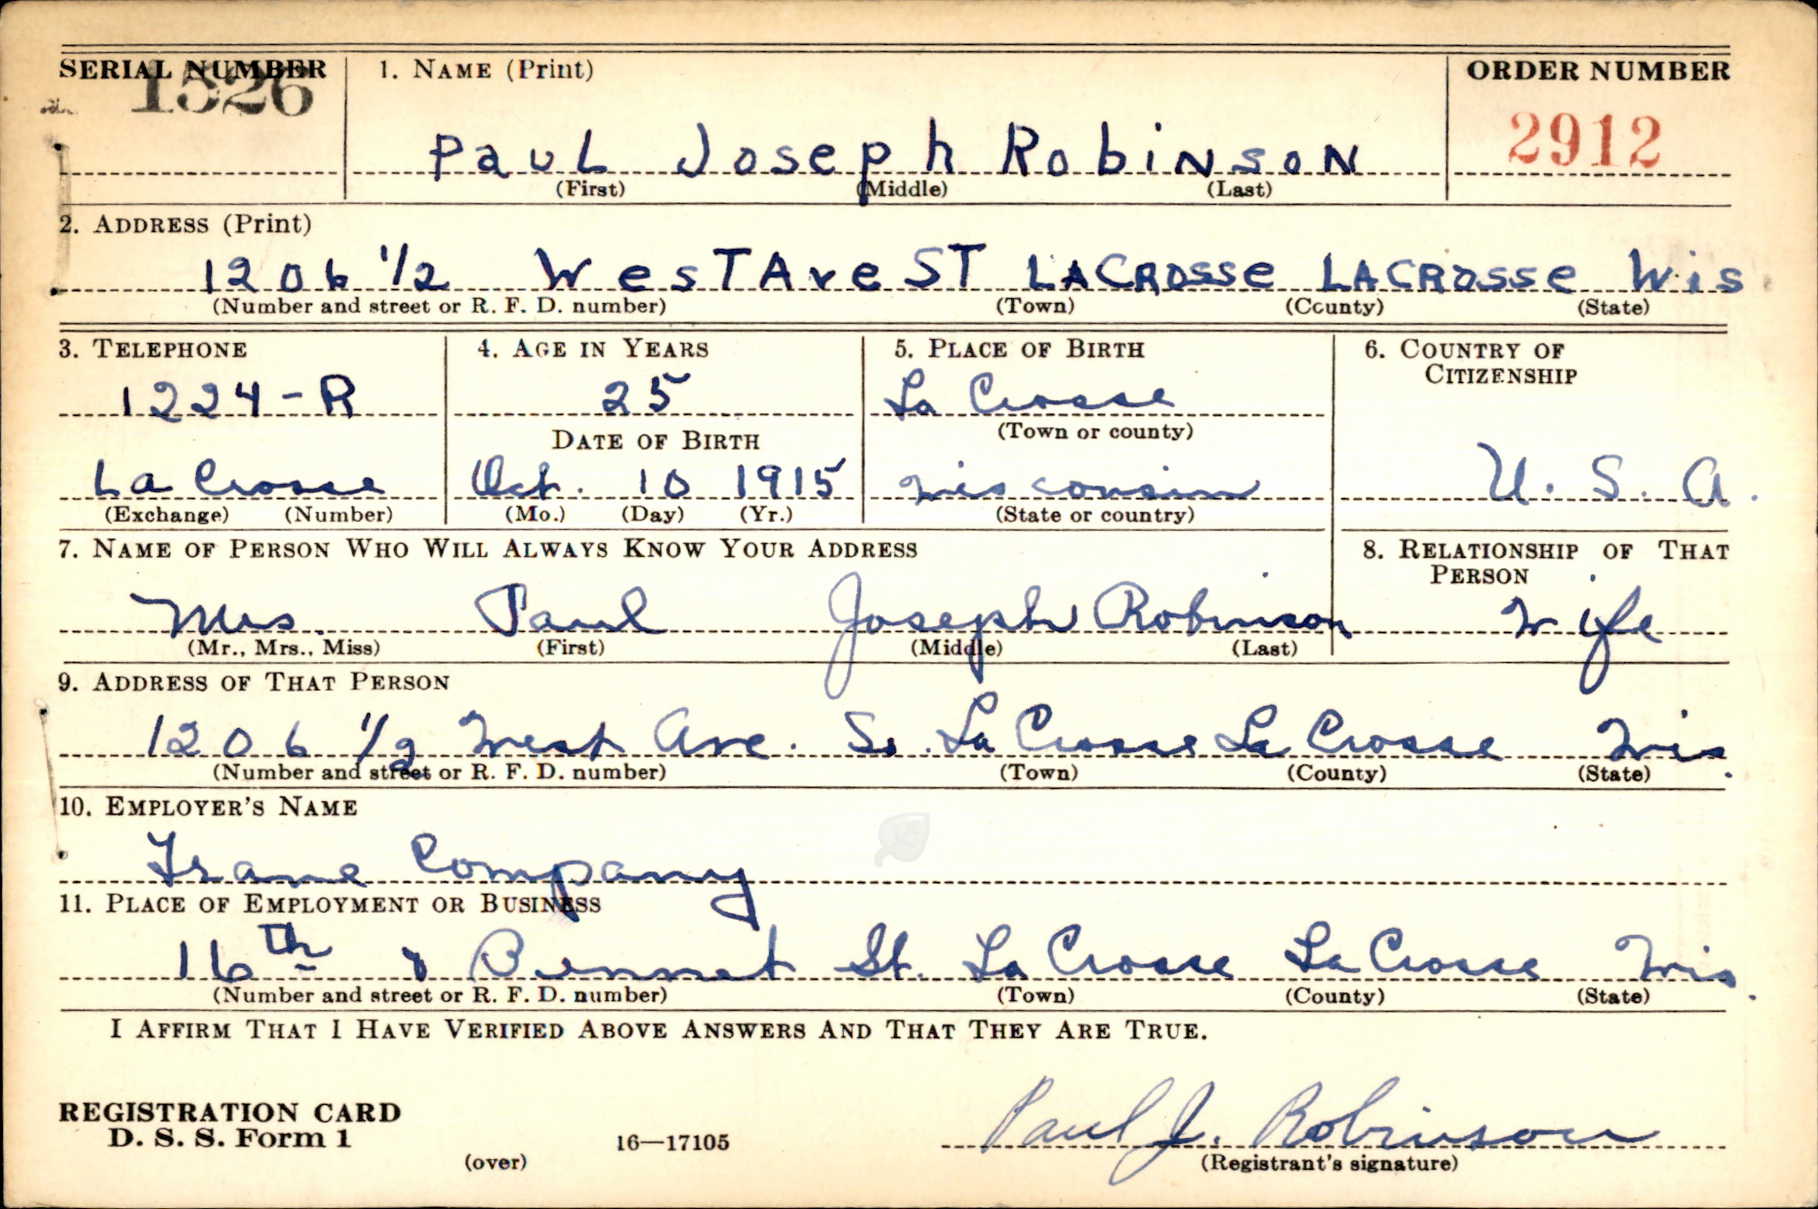 SERIAL NUMBER 1. NAME (Print) ORDER NUMBER
1526 2912
Paul Joseph Robinson
(First) (Middle) (Last)
2. ADDRESS (Print)
1206 1/2 West Ave ST LaCrosse LaCrosse Wis
(Number and street or R. F. D. number) (Town) (County) (State)
3. TELEPHONE 4. AGE IN YEARS 5. PLACE OF BIRTH 6. COUNTRY OF CITIZENSHIP
1224-R 25 La Crosse
DATE OF BIRTH (Town or county)
La Crosse Oct. 10 1915 Wisconsin U. S. A.
(Exchange) (Number) (Mo.) (Day) (Yr.) (State or country)
7. NAME OF PERSON WHO WILL ALWAYS KNOW YOUR ADDRESS 8. RELATIONSHIP OF THAT PERSON
Mrs. Paul Joseph Robinson Wife
(Mr., Mrs., Miss) (First) (Middle) (Last)
9. ADDRESS OF THAT PERSON
1206 1/2 West Ave. So. La Crosse La Crosse Wis.
(Number and street or R. F. D. number) (Town) (County) (State)
10. EMPLOYER'S NAME
Trane Company
11. PLACE OF EMPLOYMENT OR BUSINESS
16th & Bennet St. La Crosse La Crosse Wis.
(Number and street or R. F. D. number) (Town) (County) (State)
I AFFIRM THAT I HAVE VERIFIED ABOVE ANSWERS AND THAT THEY ARE TRUE.
REGISTRATION CARD
D. S. S. Form 1 16—17105 Paul J. Robinson
(over) (Registrant's signature)